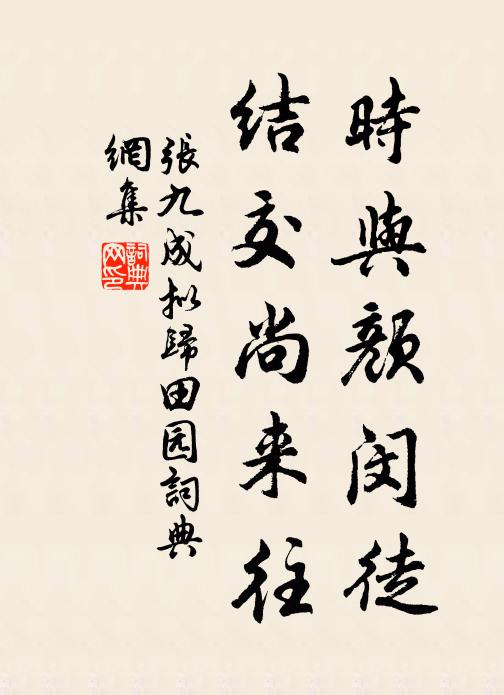 時與顔閔徒
结交尚来往
張九成拟歸田园詞典
網集
詞典網印